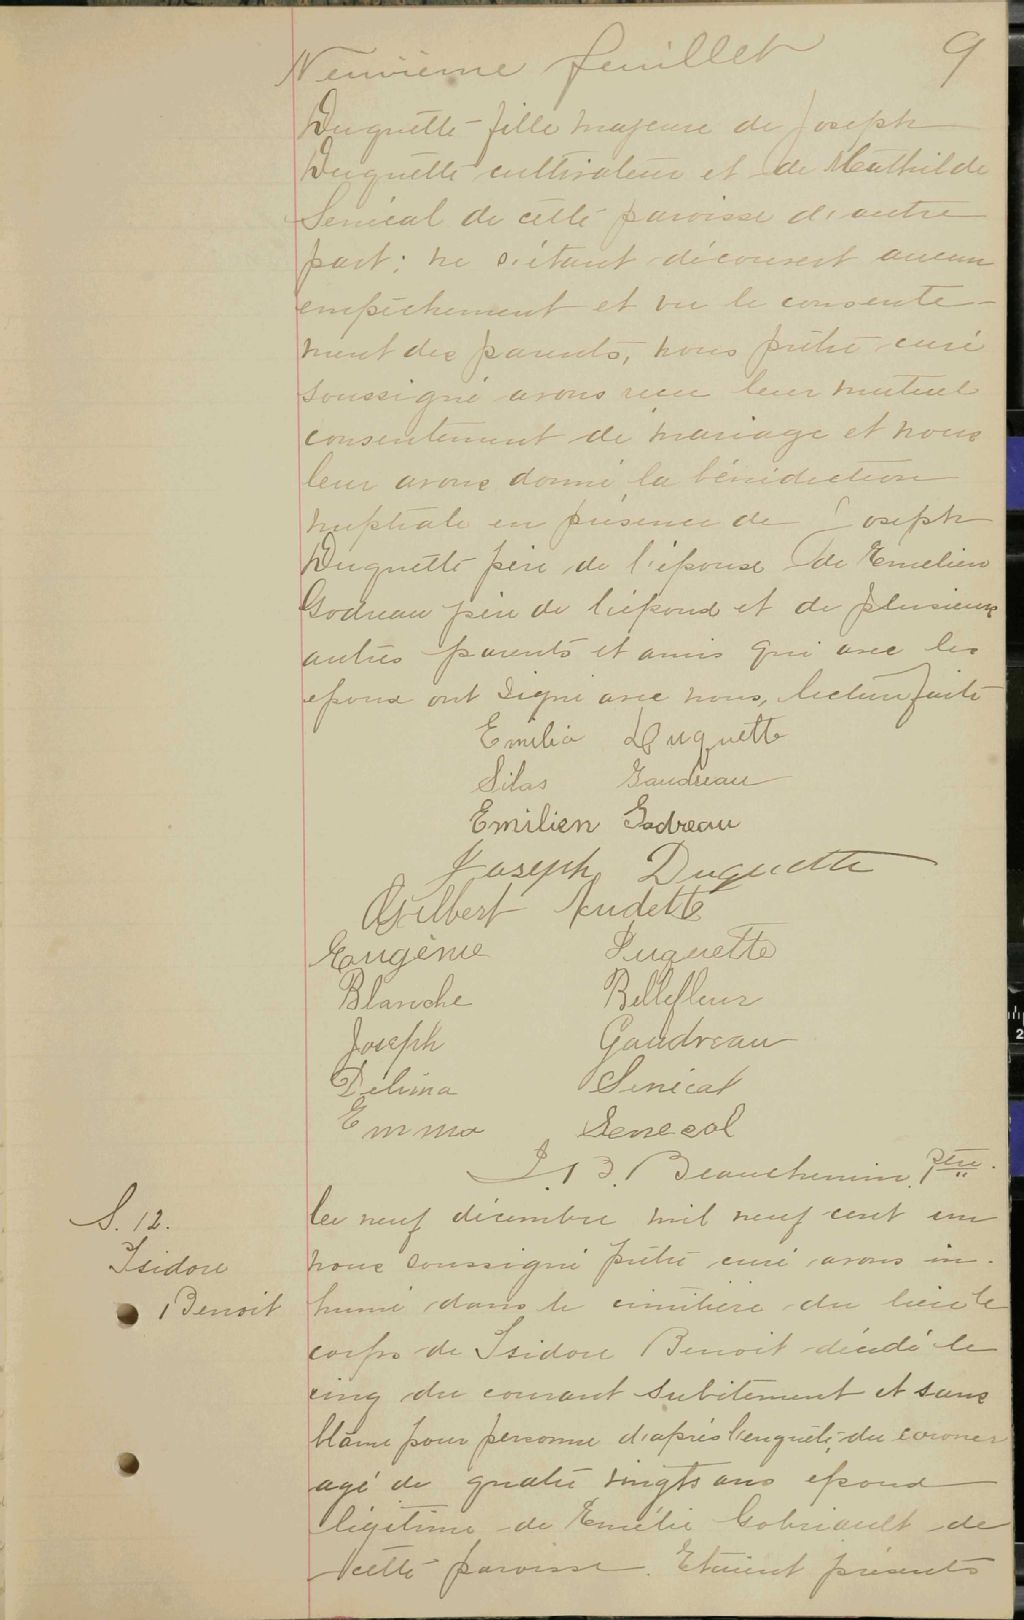 Neuvième feuillet 9
Duquette fille majeure de Joseph
Duquette cultivateur et de Mathilde
Senécal de cette paroisse d'autre
part; ne s'étant découvert aucun
empêchement et vu le consente-
ment des parents, nous prêtre curé
soussigné avons reçu leur mutuel
consentement de mariage et nous
leur avons donné la bénédiction
nuptiale en présence de Joseph
Duquette père de l'épouse de Emelien
Godreau père de l'époux et de plusieurs
autres parents et amis qui avec les
epoux ont signé avec nous, lecture faite
Emilia Duquette
Silas Gaudreau
Emilien Godreau
Joseph Duquette
Gilbert Audette
Eugénie Duquette
Blanche Bellefleur
Joseph Gaudreau
Délima Sénécal
Emma Senecal
J. B. Beauchemin, Ptre.
S. 12.
Isidore
Benoit
Le neuf décembre mil neuf cent un
nous soussigné prêtre curé avons in-
humé dans le cimitière du lieu le
corps de Isidore Benoit décédé le
cinq du courant subitement et sans
blâme pour personne d'après l'enquête du coroner
agé de quatre vingts ans epoux
légitime de Emélie Gobriault de
cette paroisse. Etaient présents